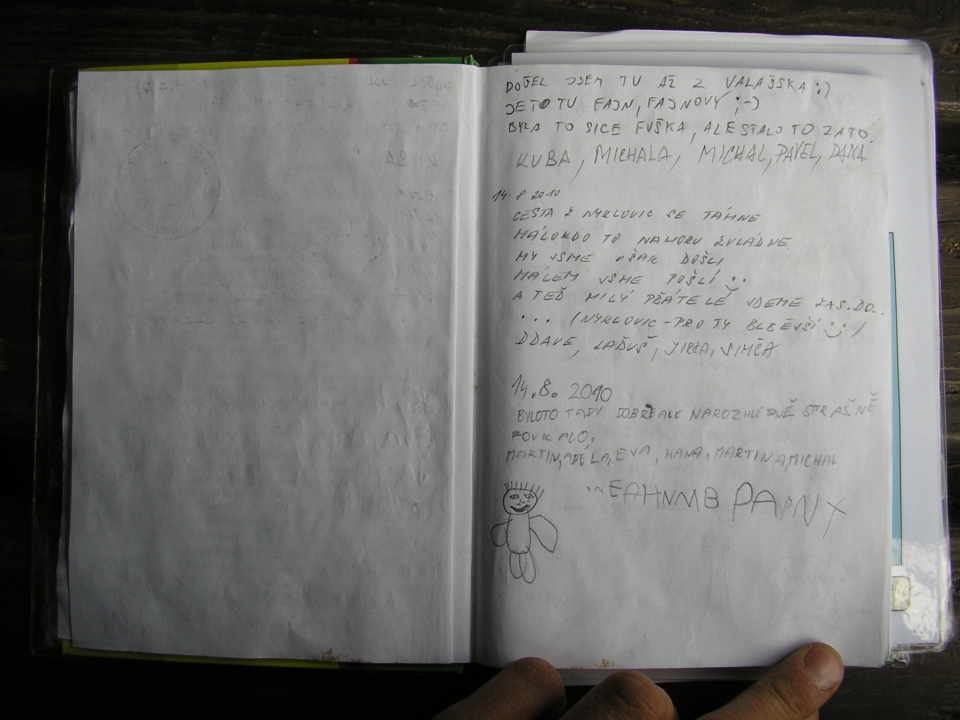 DOŠEL JSEM TU AŽ Z VALAŠSKA :)
JE TO TU FAJN, FAJNOVÝ ;-)
BYLA TO SICE FUŠKA, ALE STALO TO ZATO.
KUBA, MICHALA, MICHAL, PAVEL, DANA
14.8 2010
CESTA Z NYKLOVIC SE TÁHNE
MÁLOKDO TO NAHORU ZVLÁDNE.
MY JSME VŠAK DOŠLI
MÁLEM JSME POŠLÍ
A TEĎ MILÝ PŘÁTELÉ JDEME ZAS.DO..
... (NYKLOVIC-PRO TY BLBĚVŠÍ )
DDAVE, LAĎUŠ, JIRKA, SIMČA
14.8. 2010
BYLOTO TADY DOBŘE ALE NAROZHLEDNĚ STRAŠNĚ
FOUKALO.
MARTIN, ADÉLA, EVA, HANA, MARTIN A MICHAL